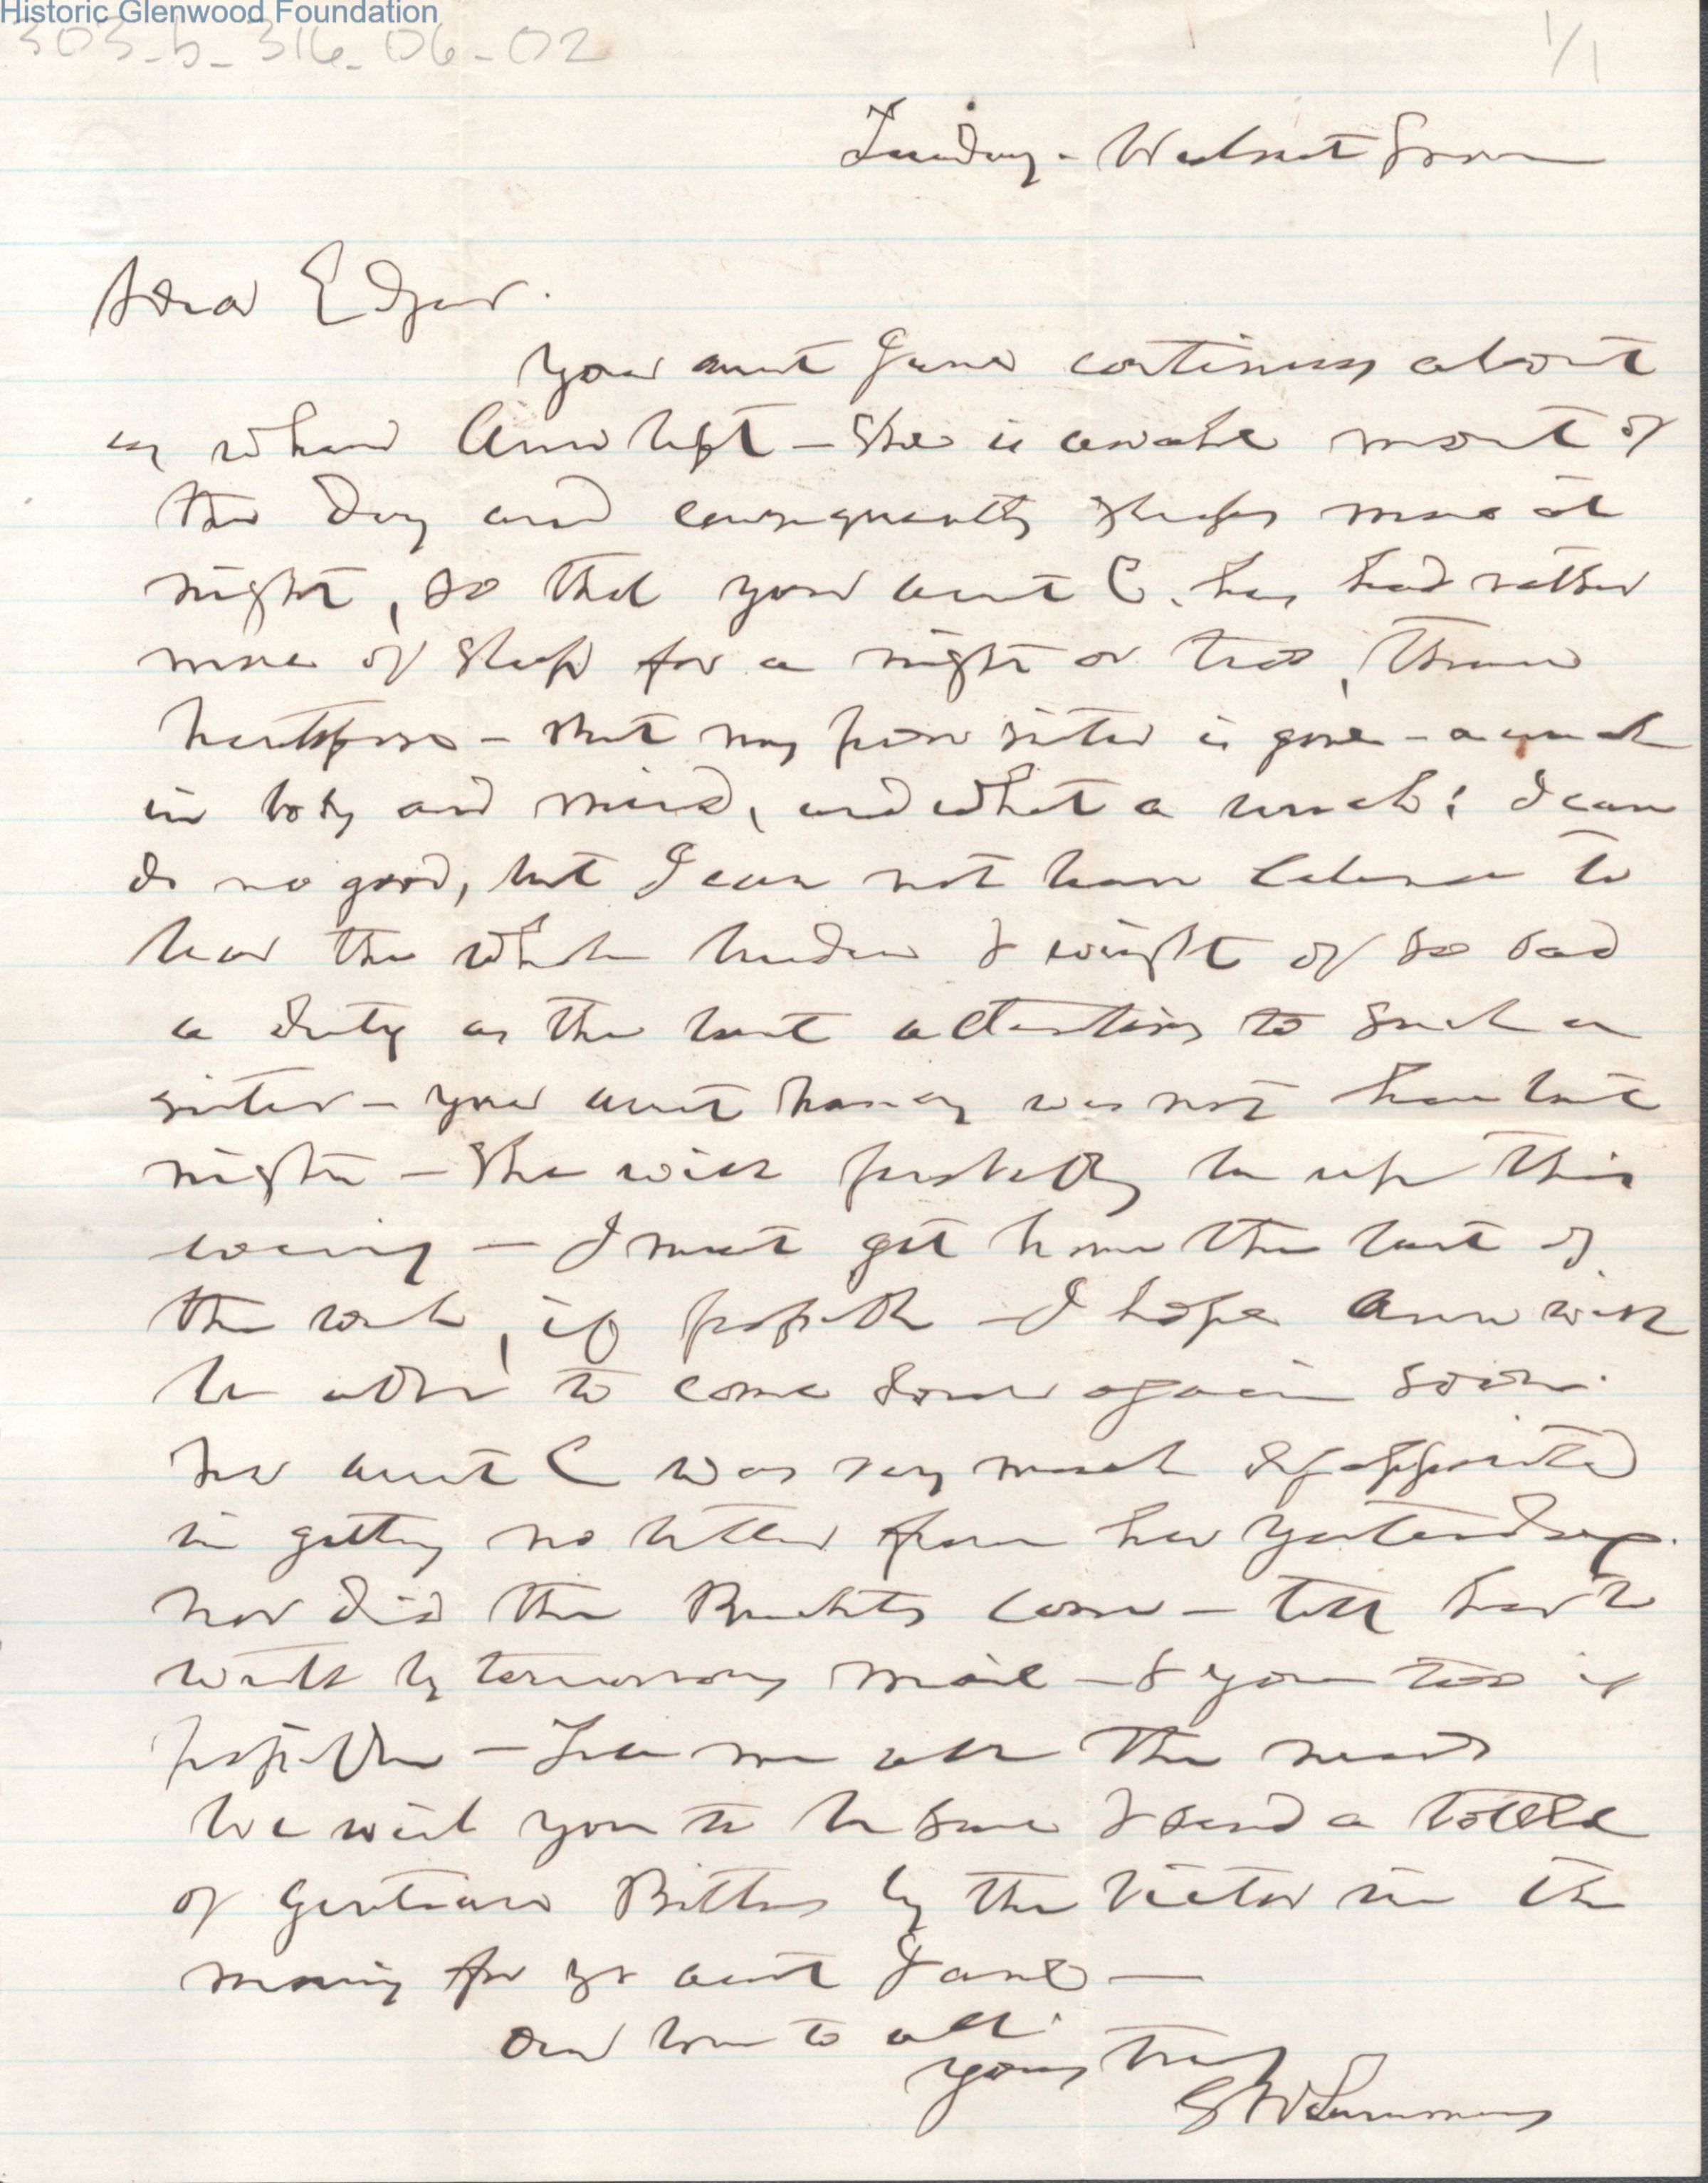 Historic Glenwood Foundation
303-b-316-06-02
1/1
Tuesday - Walnut Grove
Dear Edgar.
Your aunt Jane continues about
as when Anna left - She is awake most of
the day and consequently sleeps more at
night, so that your aunt C. has had rather
more of sleep for a night or two, than
heretofore - But my poor sister is gone - a wreck
in body and mind, and what a wreck! I can
do no good, but I can not leave Celina to
bear the whole burden & weight of so sad
a duty as the last attentions to such a
sister - your aunt Nancy was not here last
night - She will probably be up this
evening - I must get home the last of
the week, if possible - I hope Anna will
be able to come down again soon.
her aunt C was very much disappointed
in getting no letter from her yesterday.
nor did the Buckets come - tell her to
write by tomorrows mail - & you too if
possible - Give me all the news
We wish you to be sure & send a bottle
of Gentian Bitters by the Victor in the
morning for yr aunt Jane -
Our love to all.
yours truly
G W Summers